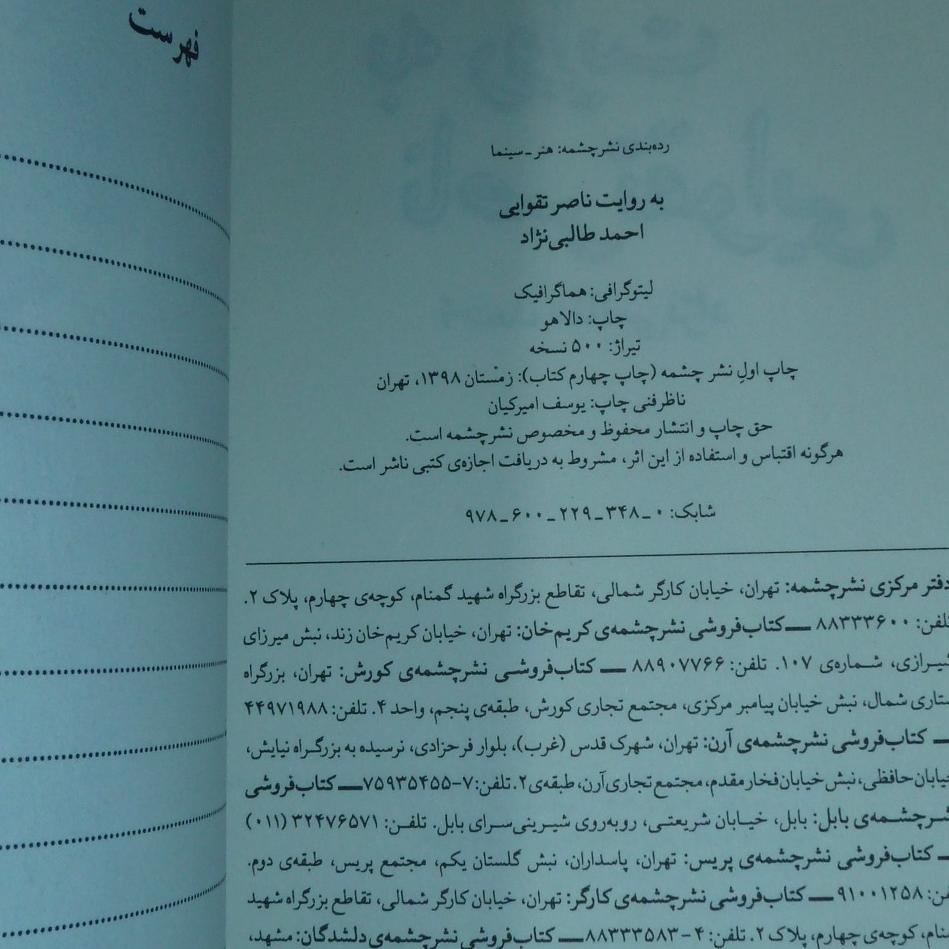 فهرست
رده‌بندی نشرچشمه: هنر ـ سینما
به روایت ناصر تقوایی
احمد طالبی‌نژاد
لیتوگرافی: هماگرافیک
چاپ: دالاهو
تیراژ: ۵۰۰ نسخه
چاپ اولِ نشر چشمه (چاپ چهارم کتاب): زمستان ۱۳۹۸، تهران
ناظر فنی چاپ: یوسف امیرکیان
حق چاپ و انتشار محفوظ و مخصوص نشرچشمه است.
هرگونه اقتباس و استفاده از این اثر، مشروط به دریافت اجازه‌ی کتبی ناشر است.
شابک: ۰ ـ ۳۴۸ ـ ۲۲۹ ـ ۶۰۰ ـ ۹۷۸
دفتر مرکزی نشرچشمه: تهران، خیابان کارگر شمالی، تقاطع بزرگراه شهید گمنام، کوچه‌ی چهارم، پلاک ۲.
تلفن: ۸۸۳۳۳۶۰۰ — کتاب‌فروشی نشرچشمه‌ی کریم‌خان: تهران، خیابان کریم‌خان زند، نبش میرزای
شیرازی، شماره‌ی ۱۰۷. تلفن: ۸۸۹۰۷۷۶۶ — کتاب‌فروشی نشرچشمه‌ی کورش: تهران، بزرگراه
ستاری شمال، نبش خیابان پیامبر مرکزی، مجتمع تجاری کورش، طبقه‌ی پنجم، واحد ۴. تلفن: ۴۴۹۷۱۹۸۸
— کتاب‌فروشی نشرچشمه‌ی آرن: تهران، شهرک قدس (غرب)، بلوار فرحزادی، نرسیده به بزرگراه نیایش،
خیابان حافظی، نبش خیابان فخار مقدم، مجتمع تجاری آرن، طبقه‌ی ۲. تلفن: ۷–۷۵۹۳۵۴۵۵ — کتاب‌فروشی
نشرچشمه‌ی بابل: بابل، خیابان شریعتی، روبه‌روی شیرینی‌سرای بابل. تلفن: ۳۲۴۷۶۵۷۱ (۰۱۱)
— کتاب‌فروشی نشرچشمه‌ی پریس: تهران، پاسداران، نبش گلستان یکم، مجتمع پریس، طبقه‌ی دوم.
تلفن: ۹۱۰۰۱۲۵۸ — کتاب‌فروشی نشرچشمه‌ی کارگر: تهران، خیابان کارگر شمالی، تقاطع بزرگراه شهید
گمنام، کوچه‌ی چهارم، پلاک ۲. تلفن: ۴–۸۸۳۳۳۵۸۳ — کتاب‌فروشی نشرچشمه‌ی دلشدگان: مشهد،